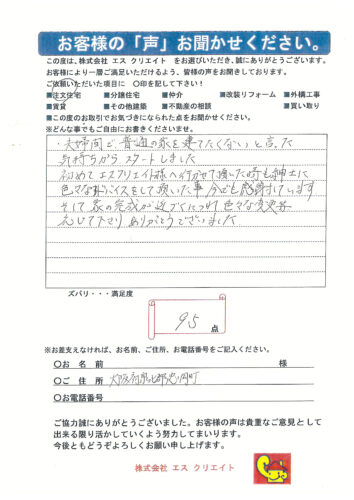 お客様の「声」お聞かせください。
この度は、株式会社 エス クリエイト をお選びいただき、誠にありがとうございます。
お客様により一層ご満足いただけるよう、皆様の声をお聞きしております。
ご依頼いただいた項目に 〇印を記して下さい！
■注文住宅 ■分譲住宅 ■仲介 ■改装リフォーム ■外構工事
■賃貸 ■その他建築 ■不動産の相談 ■買い取り
■この度のお取引でお気づきになられた点をお聞かせください。
※どんな事でもご自由にお書きくださいませ。
・夫婦間で普通の家を建てたくないと言った
気持ちからスタートしました
初めてエスクリエイト様へ行かせて頂いた時も紳士に
色々なアドバイスをして頂いた事今でも感謝しています
そして家の完成が近づくにつれ色々な変更等
応じて下さりありがとうございました
ズバリ・・・満足度
95 点
※お差支えなければ、お名前、ご住所、お電話番号をご記入ください。
〇お 名 前 様
〇ご 住 所 大阪府泉北郡忠岡町
〇お電話番号
ご協力誠にありがとうございました。お客様の声は貴重なご意見として
出来る限り活かしていくよう努力してまいります。
今後ともどうぞよろしくお願い申し上げます。
株式会社 エス クリエイト